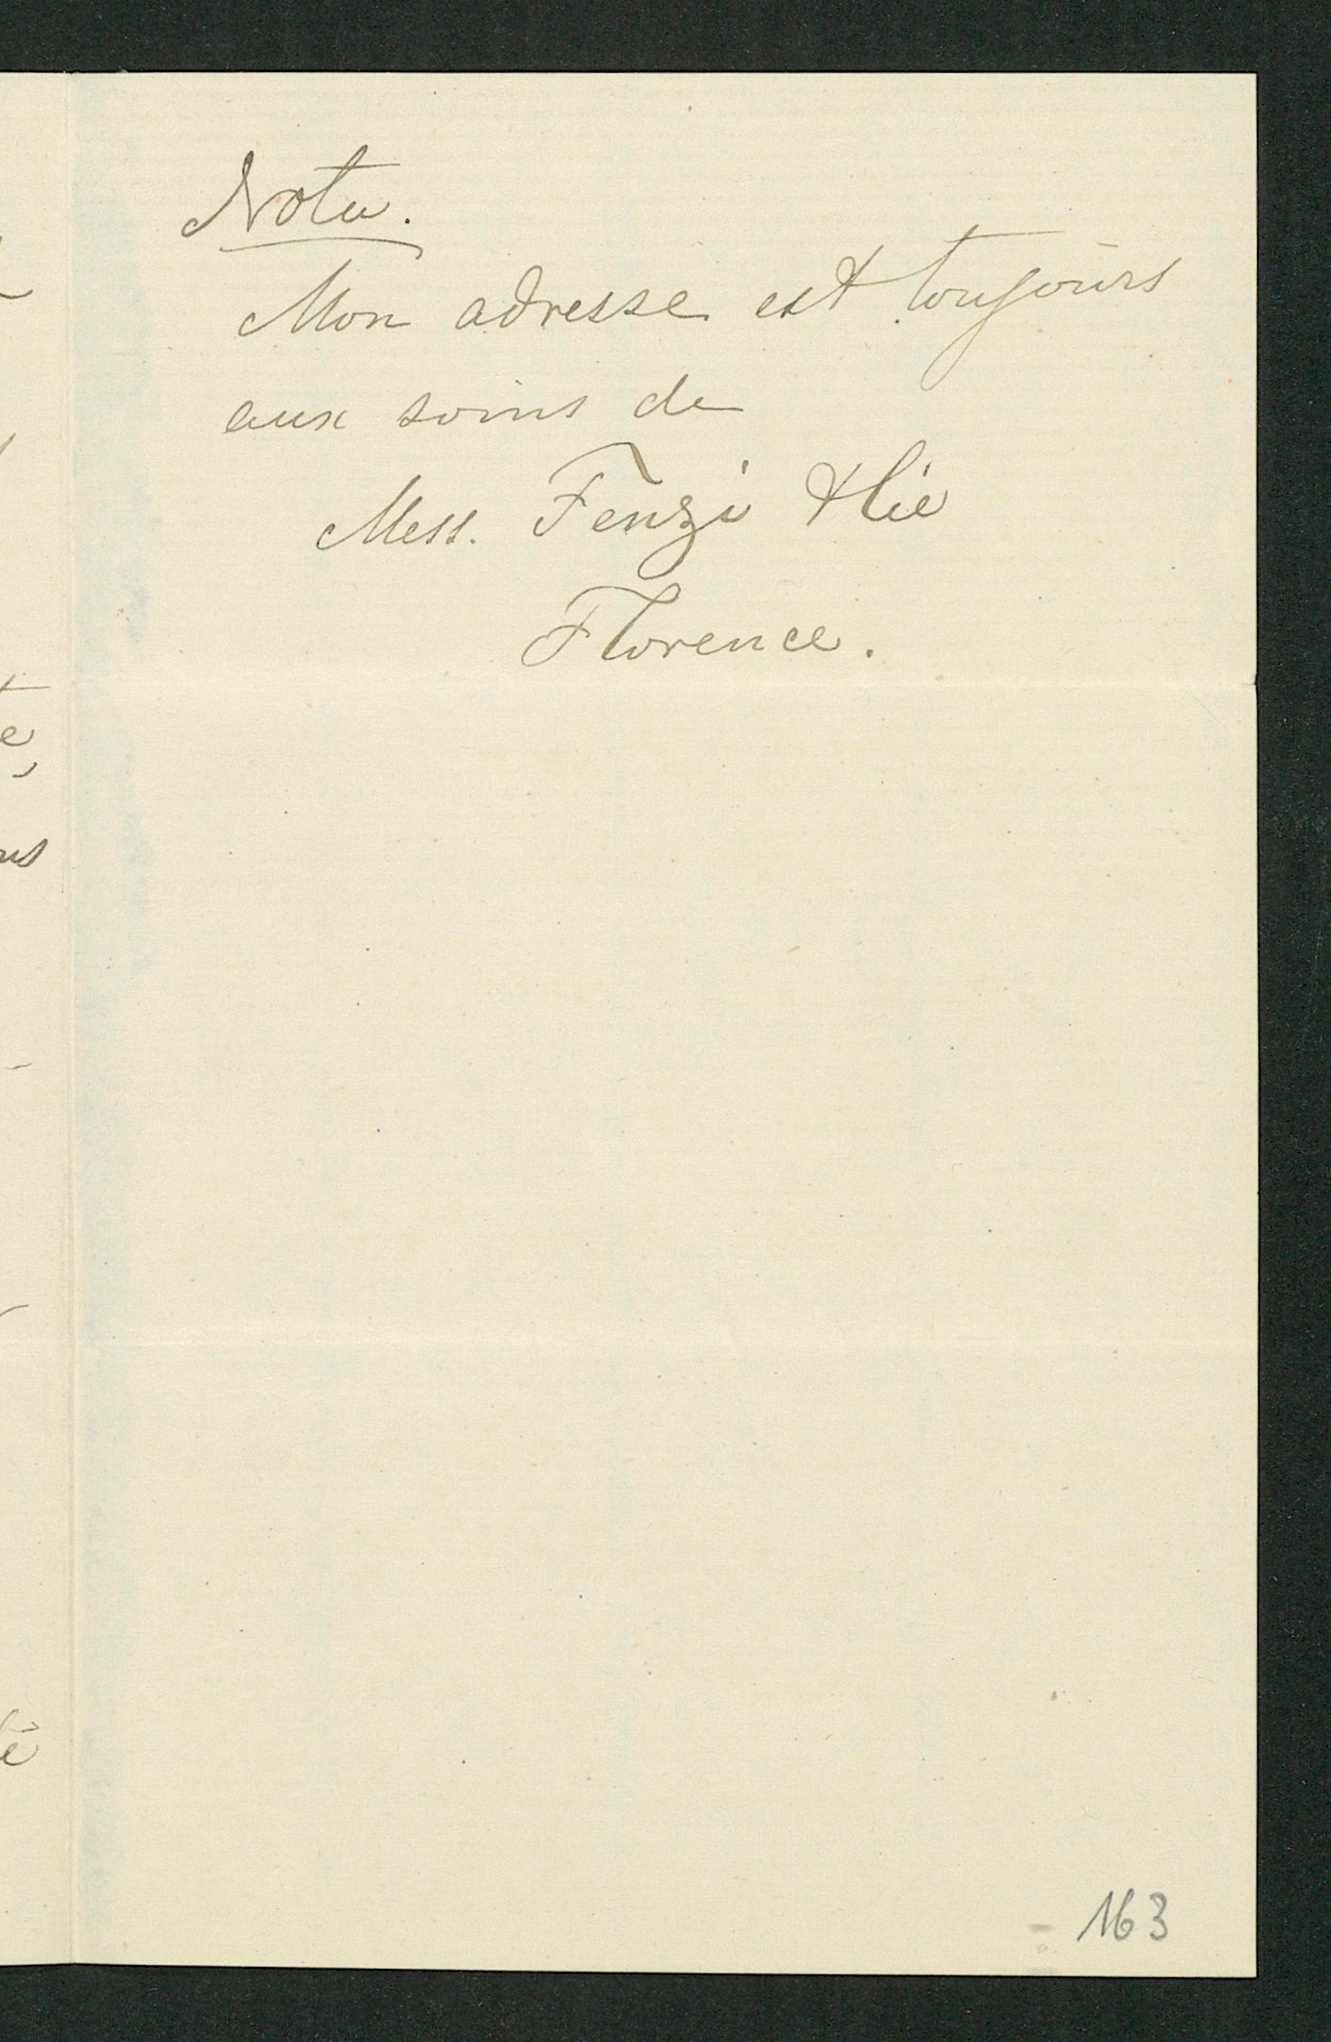 Nota.
Mon adresse est toujours
aux soins de
Mess. Fenzi & Cie
Florence.
163